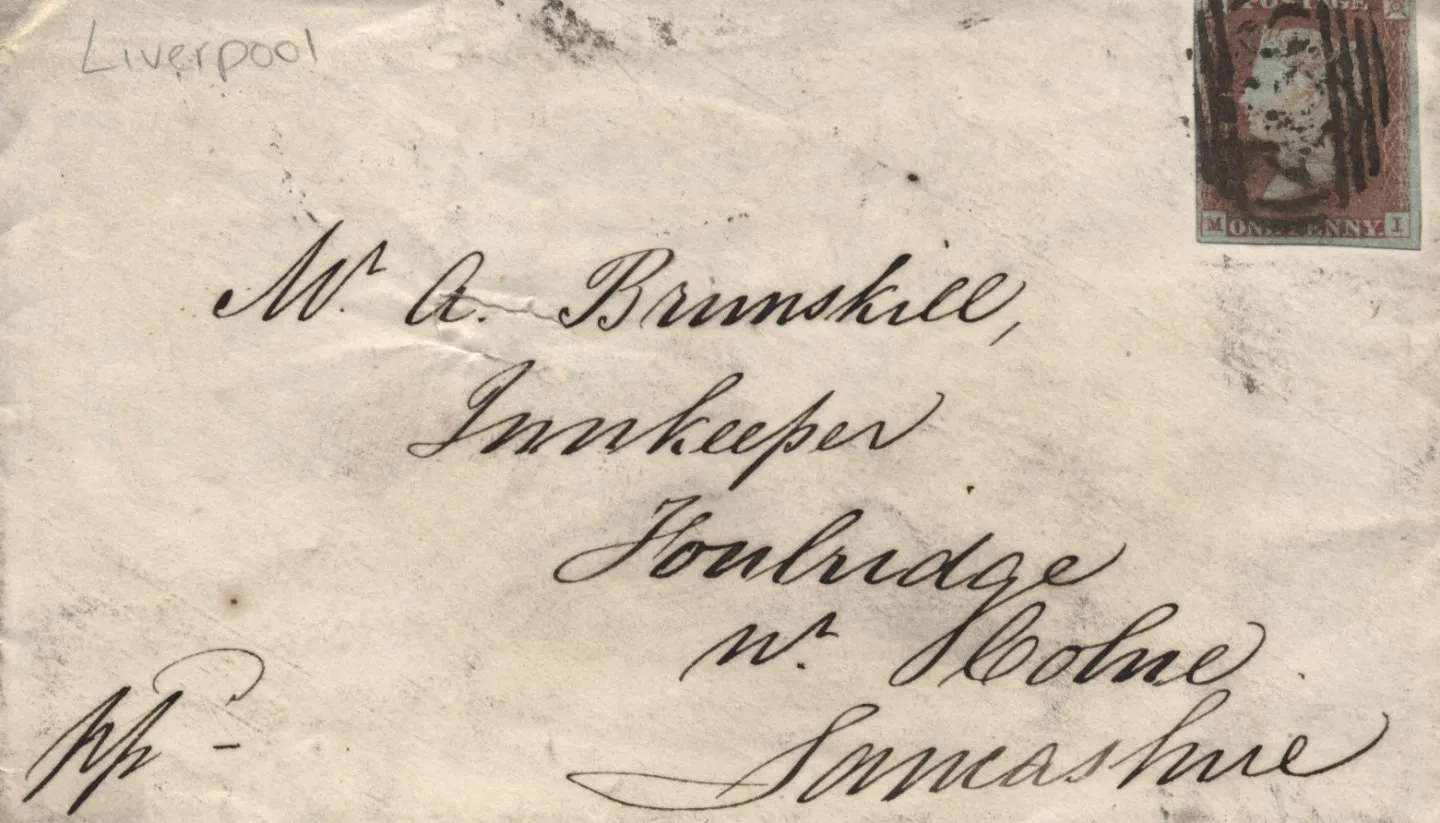 Liverpool
POSTAGE
M ONE PENNY I
Mr. A. Brunskill,
Innkeeper
Foulridge
nr. Colne
Lancashire
pp